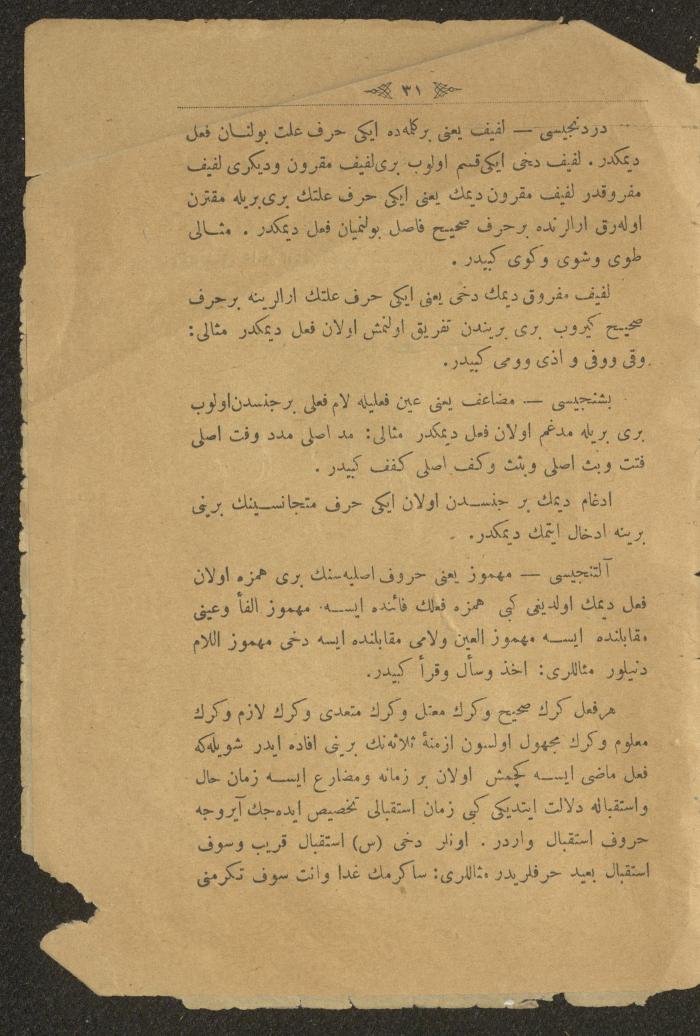 ٣١
دردنجیسی — لفیف یعنی برکلمه‌ده ایکی حرف علت بولنــان فعل
دیمکدر . لفیف دخی ایکی‌قسم اولوب بری‌لفیف مقرون ودیکری لفیف
مفروقدر لفیف مقرون دیمك یعنی ایکی حرف علتك بری‌بریله مقترن
اوله‌رق ارالرنده برحرف صحیــح فاصل بولنمیان فعل دیمکدر . مثــالی
طوی وشوی وکوی کبیدر .
لفیف مفروق دیمك دخی یعنی ایکی حرف علتك ارالرینه برحرف
صحیــح کیروب بری بریندن تفریق اولنمش اولان فعل دیمکدر مثالی:
وقی ووفی و اذی وومی کبیدر.
بشنجیسی — مضاعف یعنی عین فعلیله لام فعلی برجنسدن‌اولوب
بری بریله مدغم اولان فعل دیمکدر مثالی: مد اصلی مدد وفت اصلی
فتت وبث اصلی وبثث وکف اصلی کفف کبیدر .
ادغام دیمك بر جنســدن اولان ایکی حرف متجانســینك برینی
برینه ادخال ایتمك دیمکدر.
آلتنجیسی — مهموز یعنی حروف اصلیه‌سنك بری همزه اولان
فعل دیمك اولدیغی کبی همزه فعلك فائنده ایســه مهموز الفأ وعینی
مقابلنده ایســه مهموز العین ولامی مقابلنده ایسه دخی مهموز اللام
دنیلور مثاللری: اخذ وسأل وقرأ کبیدر.
هرفعل کرك صحیح وکرك معتل وکرك متعدی وکرك لازم وکرك
معلوم وکرك مجهول اولسون ازمنهٔ ثلاثه‌نك برینی افاده ایدر شویله‌که
فعل ماضی ایســه کچمش اولان بر زمانه ومضارع ایســه زمان حال
واستقباله دلالت ایتدیکی کبی زمان استقبالی تخصیص ایده‌جك آیروجه
حروف استقبال واردر . اونلر دخی (س) استقبال قریب وسوف
استقبال بعید حرفلریدر مثاللری: ساکرمك غدا وانت سوف تکرمنی